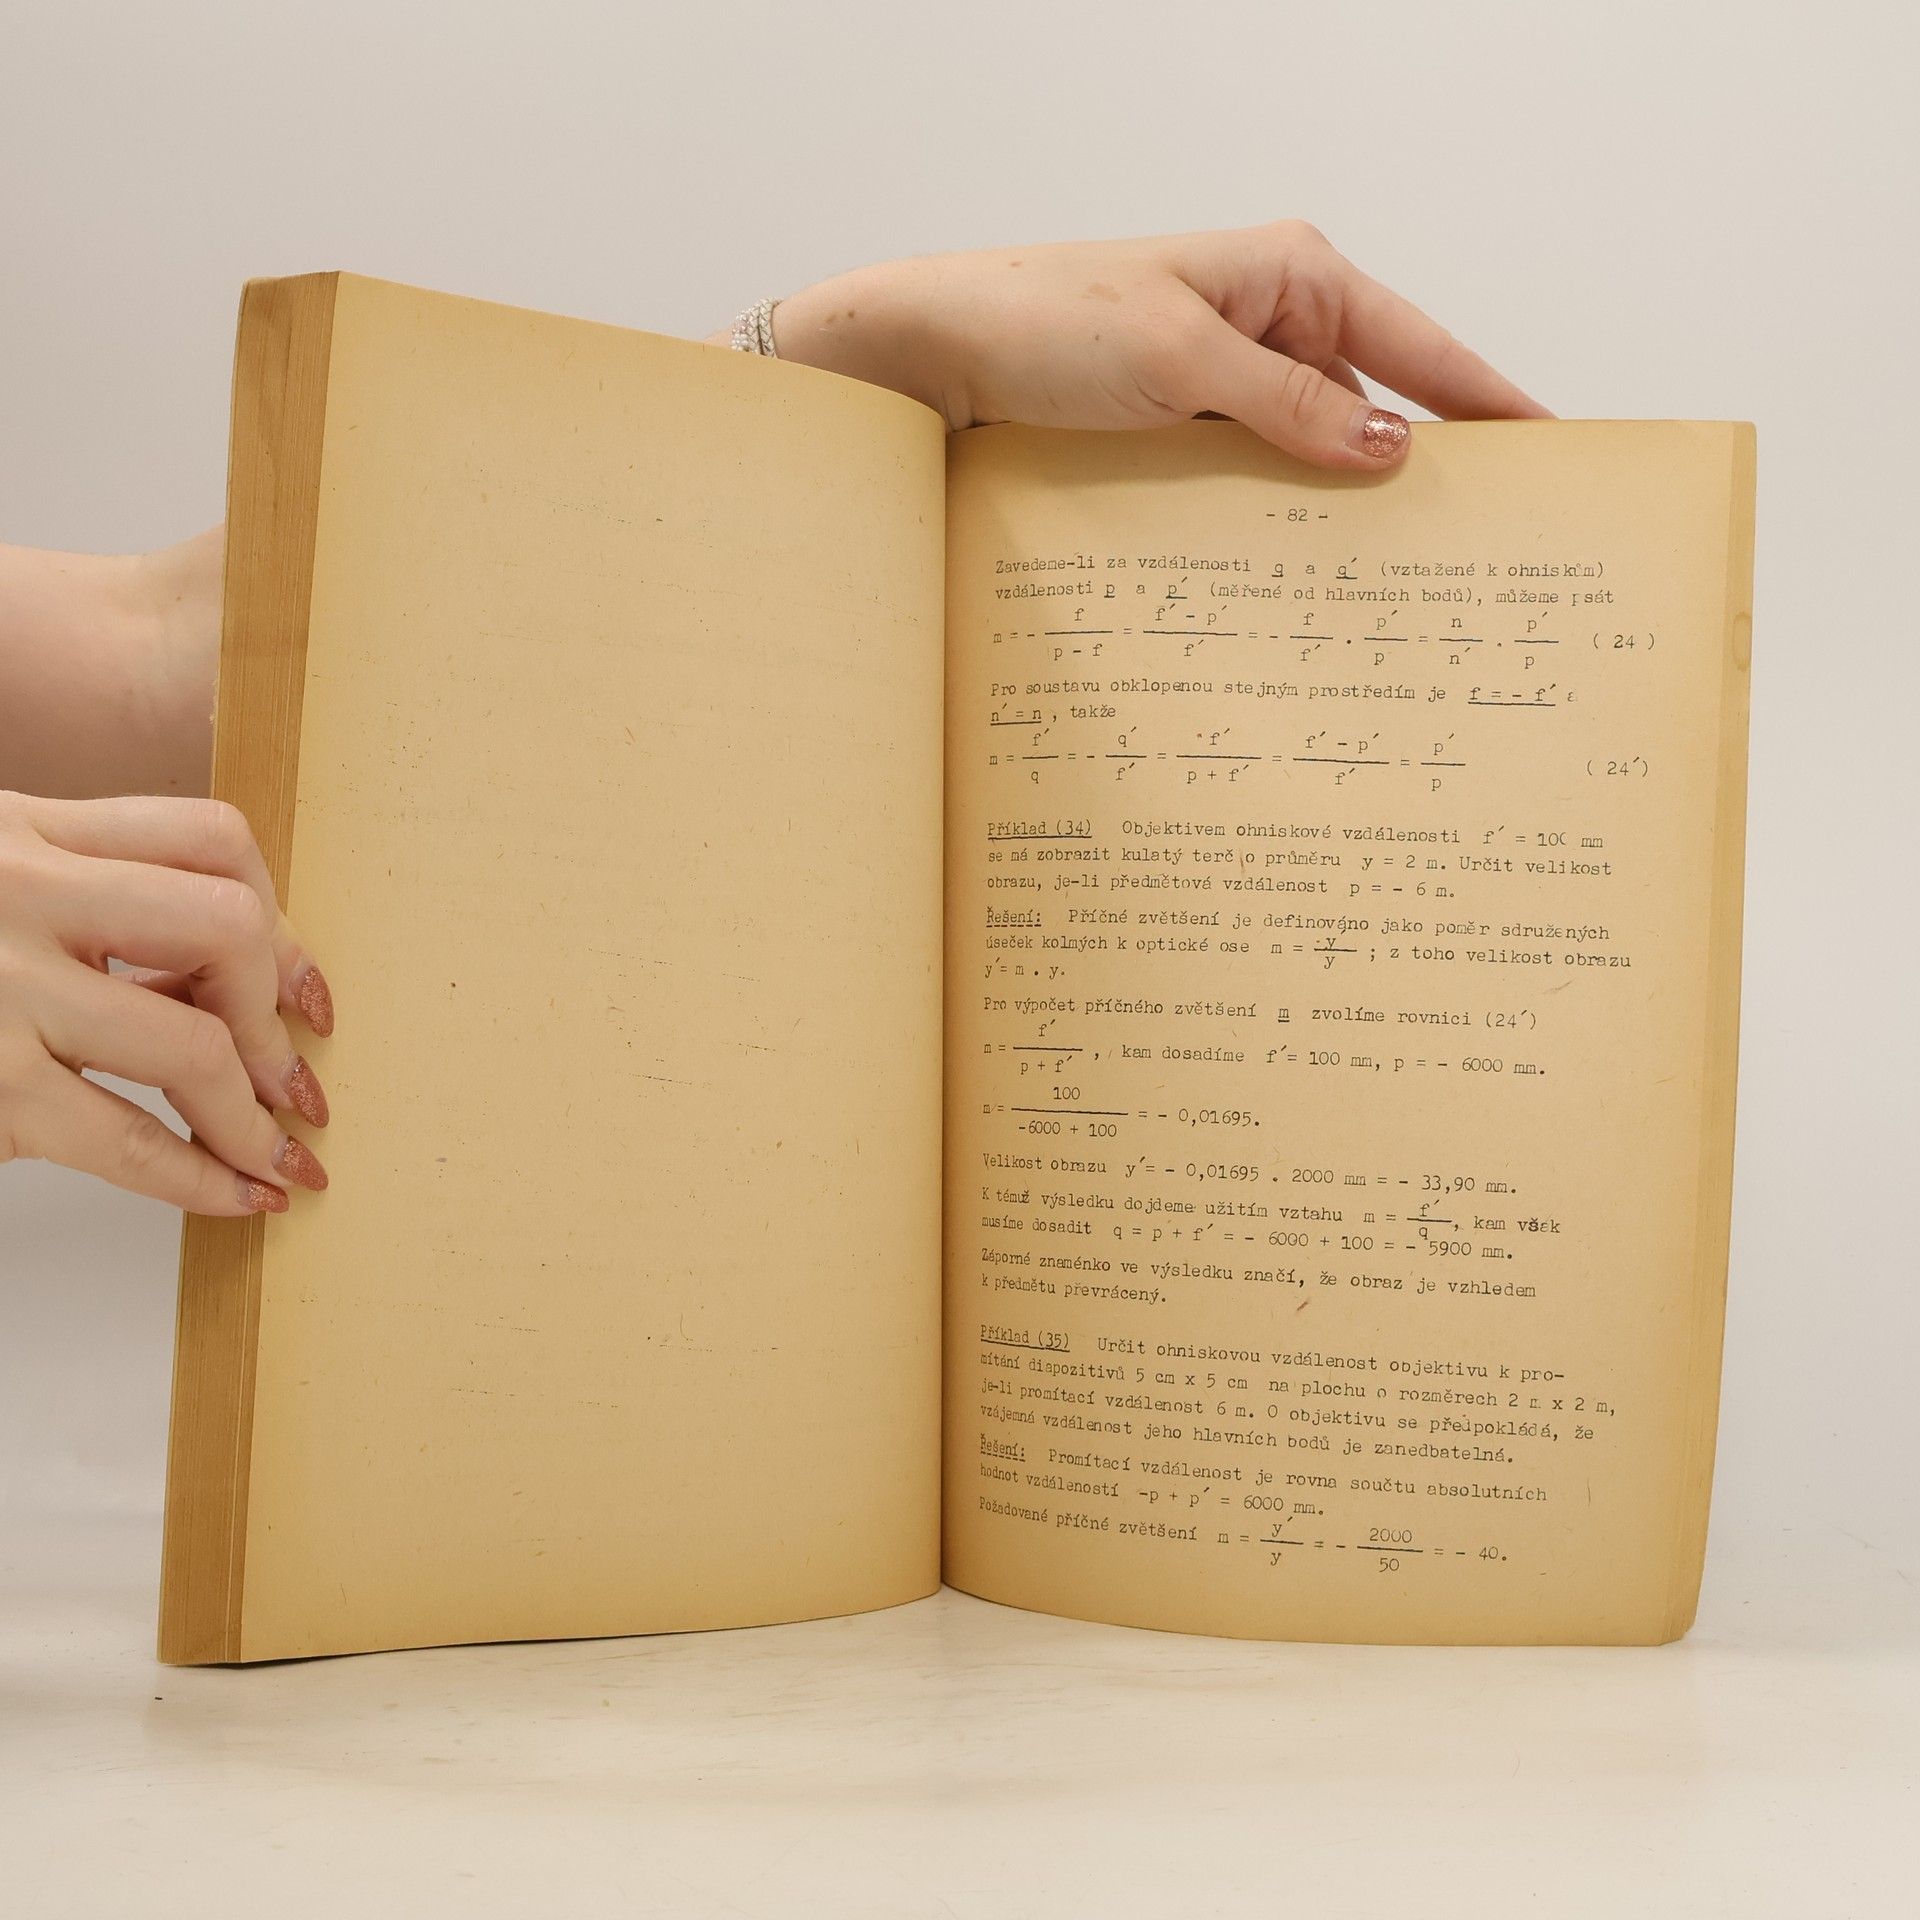 - 82 -
Zavedeme-li za vzdálenosti q a q′ (vztažené k ohniskům)
vzdálenosti p a p′ (měřené od hlavních bodů), můžeme psát
m = - f / (p - f) = (f′ - p′) / f′ = - f / f′ . p′ / p = n / n′ . p′ / p ( 24 )
Pro soustavu obklopenou stejným prostředím je f = - f′ a
n′ = n , takže
m = f′ / q = - q′ / f′ = f′ / (p + f′) = (f′ - p′) / f′ = p′ / p ( 24′)
Příklad (34) Objektivem ohniskové vzdálenosti f′ = 100 mm
se má zobrazit kulatý terč o průměru y = 2 m. Určit velikost
obrazu, je-li předmětová vzdálenost p = - 6 m.
Řešení: Příčné zvětšení je definováno jako poměr sdružených
úseček kolmých k optické ose m = y′ / y ; z toho velikost obrazu
y′= m . y.
Pro výpočet příčného zvětšení m zvolíme rovnici (24′)
m = f′ / (p + f′) , kam dosadíme f′= 100 mm, p = - 6000 mm.
m = 100 / (-6000 + 100) = - 0,01695.
Velikost obrazu y′= - 0,01695 . 2000 mm = - 33,90 mm.
K témuž výsledku dojdeme užitím vztahu m = f′ / q , kam však
musíme dosadit q = p + f′ = - 6000 + 100 = - 5900 mm.
Záporné znaménko ve výsledku značí, že obraz je vzhledem
k předmětu převrácený.
Příklad (35) Určit ohniskovou vzdálenost objektivu k pro-
mítání diapozitivů 5 cm x 5 cm na plochu o rozměrech 2 m x 2 m,
je-li promítací vzdálenost 6 m. O objektivu se předpokládá, že
vzájemná vzdálenost jeho hlavních bodů je zanedbatelná.
Řešení: Promítací vzdálenost je rovna součtu absolutních
hodnot vzdáleností -p + p′ = 6000 mm.
Požadované příčné zvětšení m = y′ / y = - 2000 / 50 = - 40.